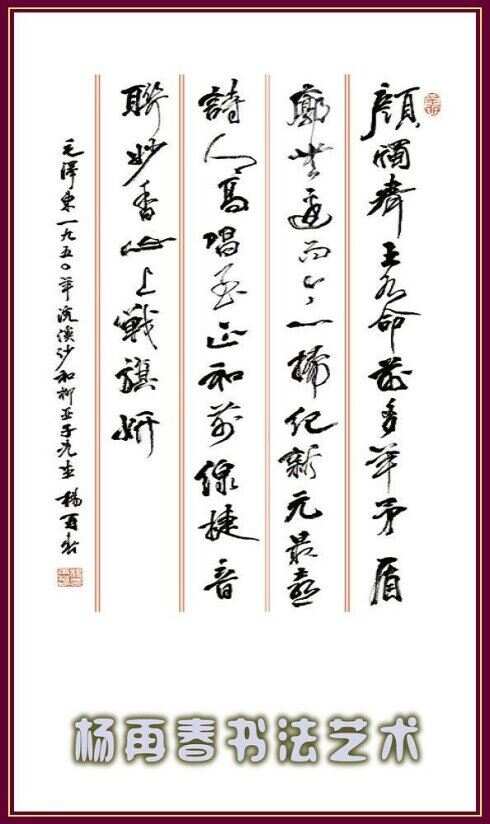 顏斶齊王各命前多年矛盾
廓無邊而今一掃紀新元最喜
詩人高唱至正和前線捷音
聯妙香山上戰旗妍
毛澤東一九五〇年浣溪沙和柳亞子先生 楊再春
杨再春书法艺术